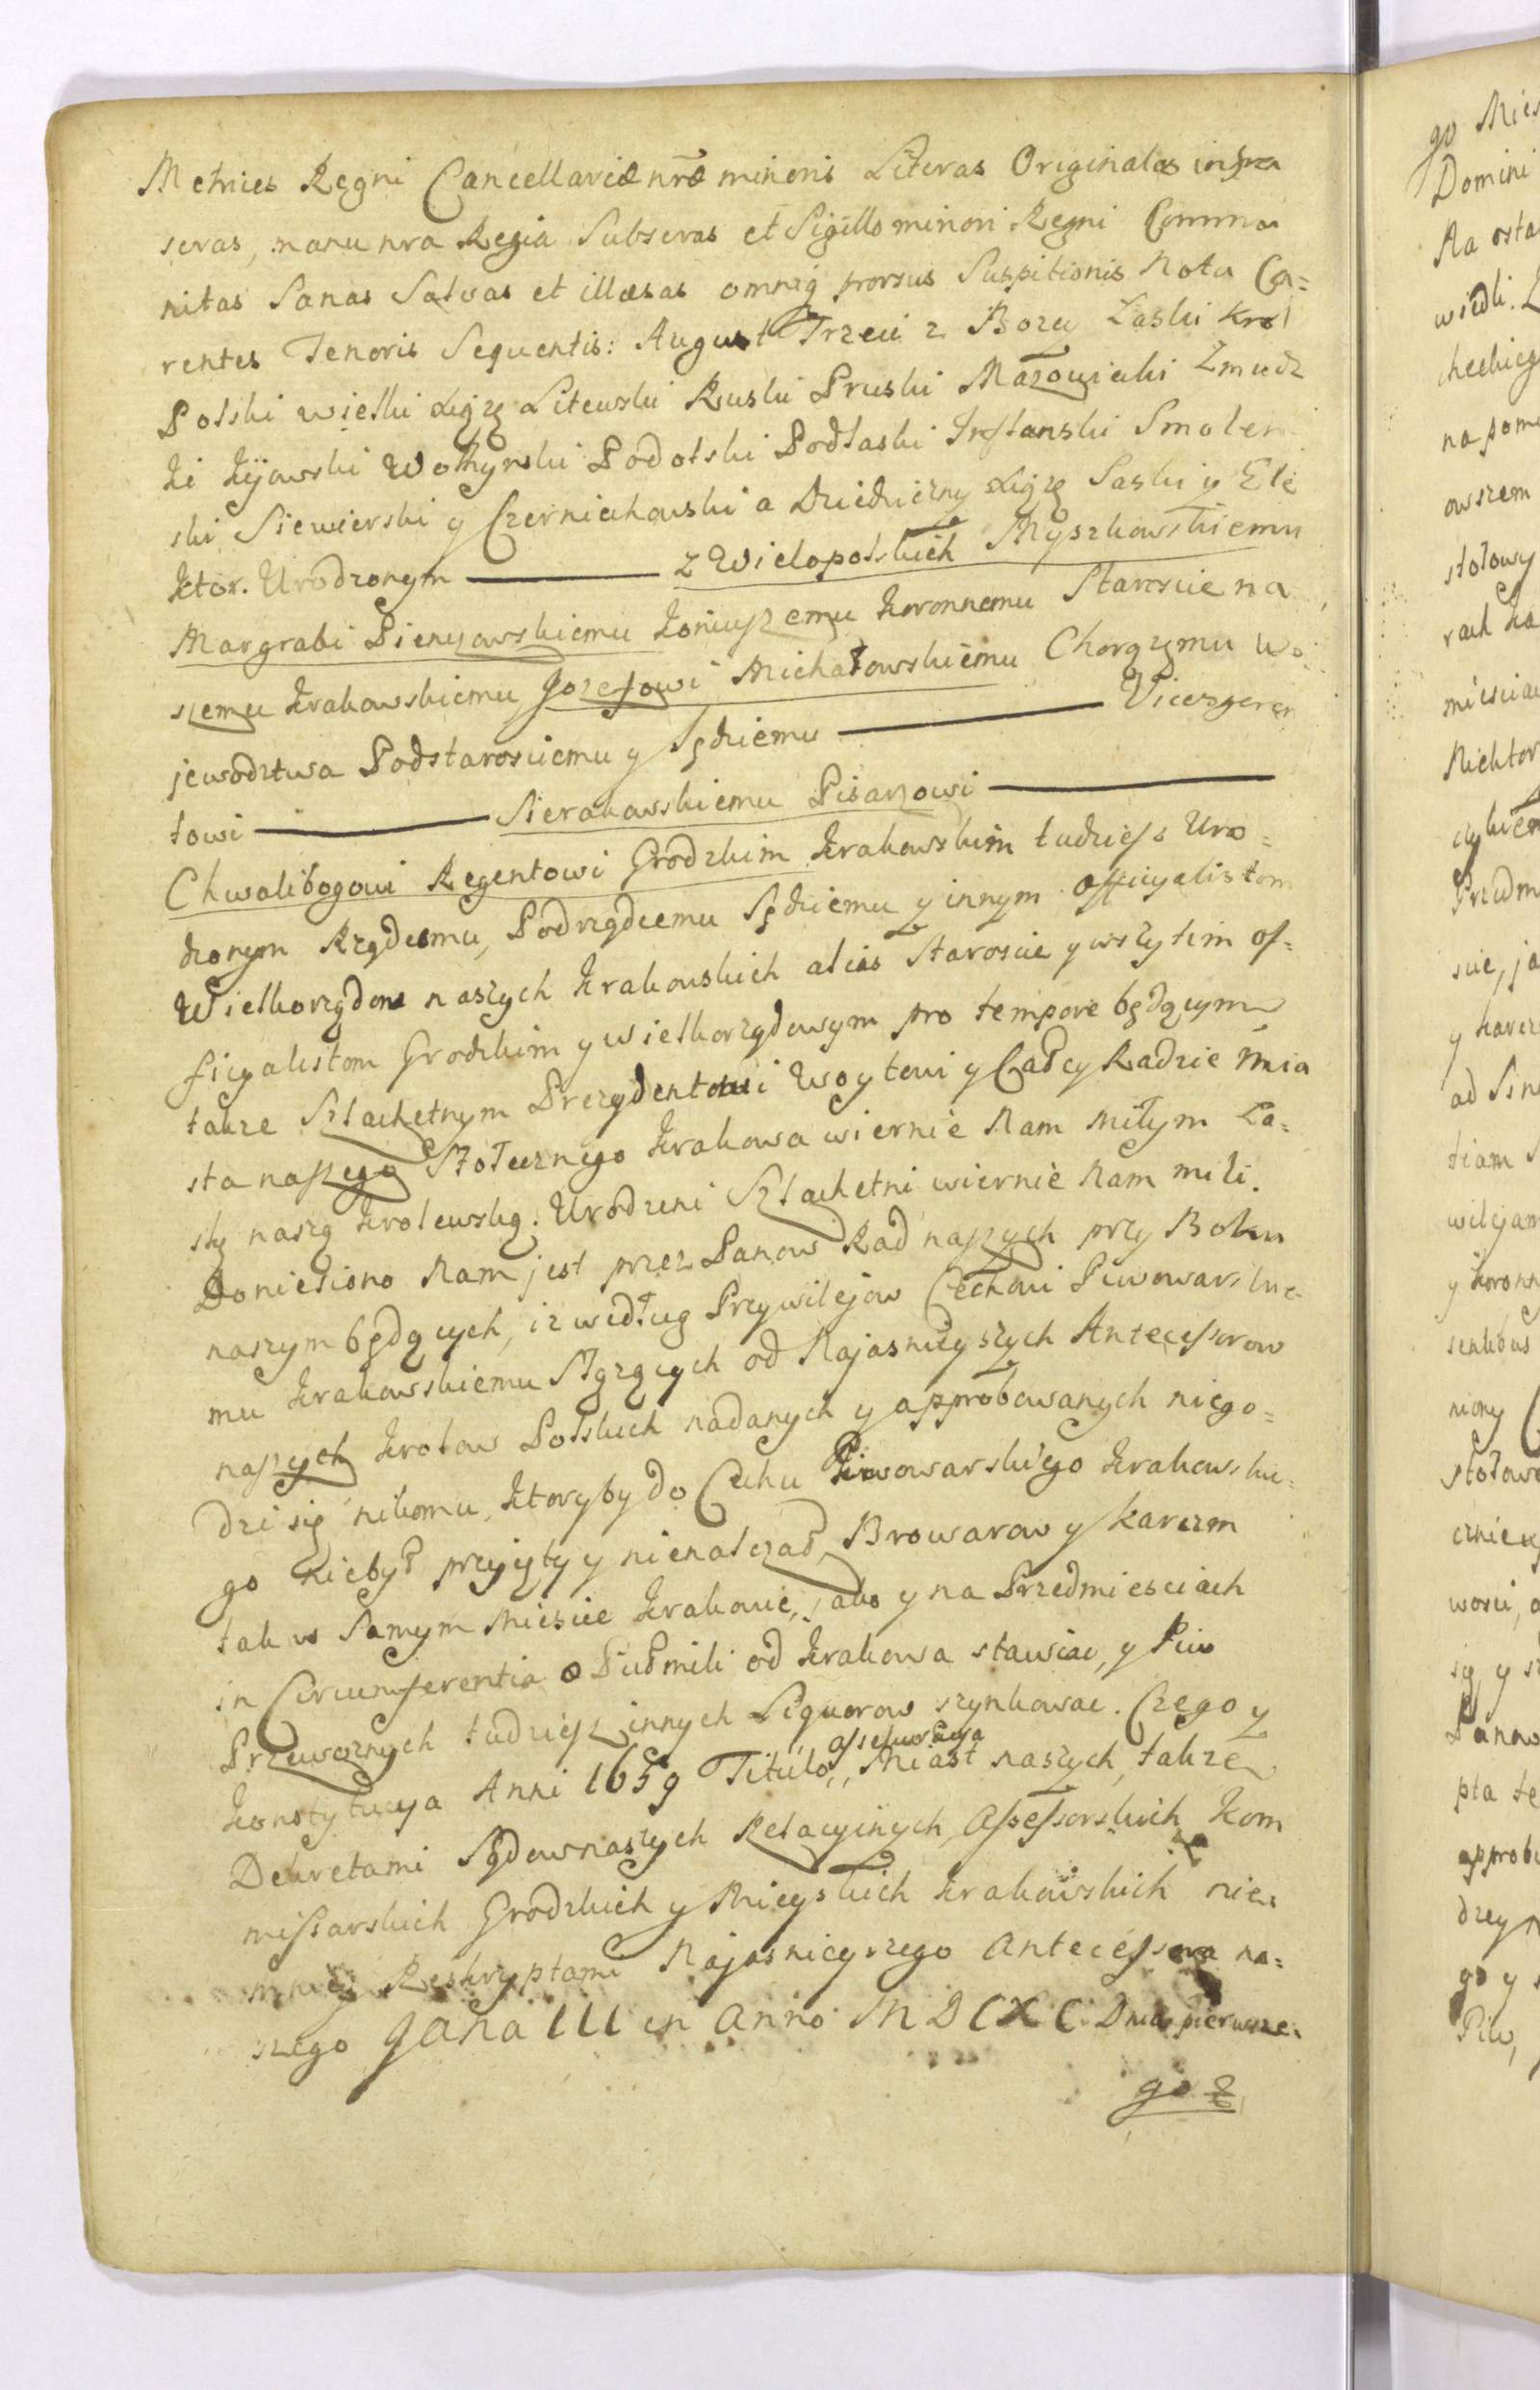 Metrices Regni Cancellariæ nr̃æ minoris Literas Originales infra
scras, manu nra Regia Subscras et Sigillo minori Regni Commu
nitas Sanas Salvas et illæsas omniq prorsus Suspitionis Nota Ca=
rentes Tenoris Sequentis: August Trzeci z Bozey Łaski Krol
Polski wielki Xiąze Litewski Ruski Pruski Mazowiecki Zmudz
ki Kijowski Wołhynski Podolski Podlaski Inflanski Smolen
ski Siewierski y Czerniechowski a Dziedziczny Xiąze Saski y Ele
ktor. Urodzonym ——— z Wielopolskich Myszkowskiemu
Margrabi Pinczowskiemu Koniuszemu Koronnemu Staroscie na
szemu Krakowskiemu Jozefowi Michałowskiemu Chorązemu Wo
jewodztwa Podstarosciemu y Sędziemu ——— Vicesgeren
towi ——— Sierakowskiemu Pisarzowi ———
Chwalibogowi Regentowi Grodzkim Krakowskim tudziesz Uro=
dzonym Rządcomu, Podrządcemu Sędziemu y innym Officyalistom
Wielkorządow naszych Krakowskich alias Staroscie y wszytkim of=
ficyalistom Grodzkim y wielkorządowym pro tempore będącym
takze Szlachetnym Prezydentowi Woytowi y Całey Radzie Mia
sta naszego Stołecznego Krakowa wiernie Nam Miłym Ła=
skę naszą Krolewską. Urodzeni Szlachetni wiernie Nam mili.
Doniesiono Nam jest przez Panow Rad naszych przy Boku
naszym będących, iz według Przywilejow Cechowi Piwowarskie
mu Krakowskiemu Słązących od Najasnieyszych Antecessorow
naszych Krolow Polskich nadanych y approbowanych niego=
dzi się nikomu, ktory by do Cechu Piwowarskiego Krakowskie
go niebył przyięty y nienalezał, Browarow y karczm
tak w Samym Miescie Krakowie, jako y na Przedmiesciach
in Circumferentia o Puł mili od Krakowa stawiac, y Piw
Przewoznych tudziesz innych Liquorow szynkowac. Czego y
Konstytucya Anni 1659 Titulo,, assekuracya Miast naszych, takze
Dekretami Sądow naszych Relacyinych, Assessorskich Kom
missarskich Grodzkich y Mieyskich Krakowskich nie
mniey Reskryptami Najasnieyszego Antecessora na=
szego Jana III in Anno MDCXC Dnia pierwsze
go z